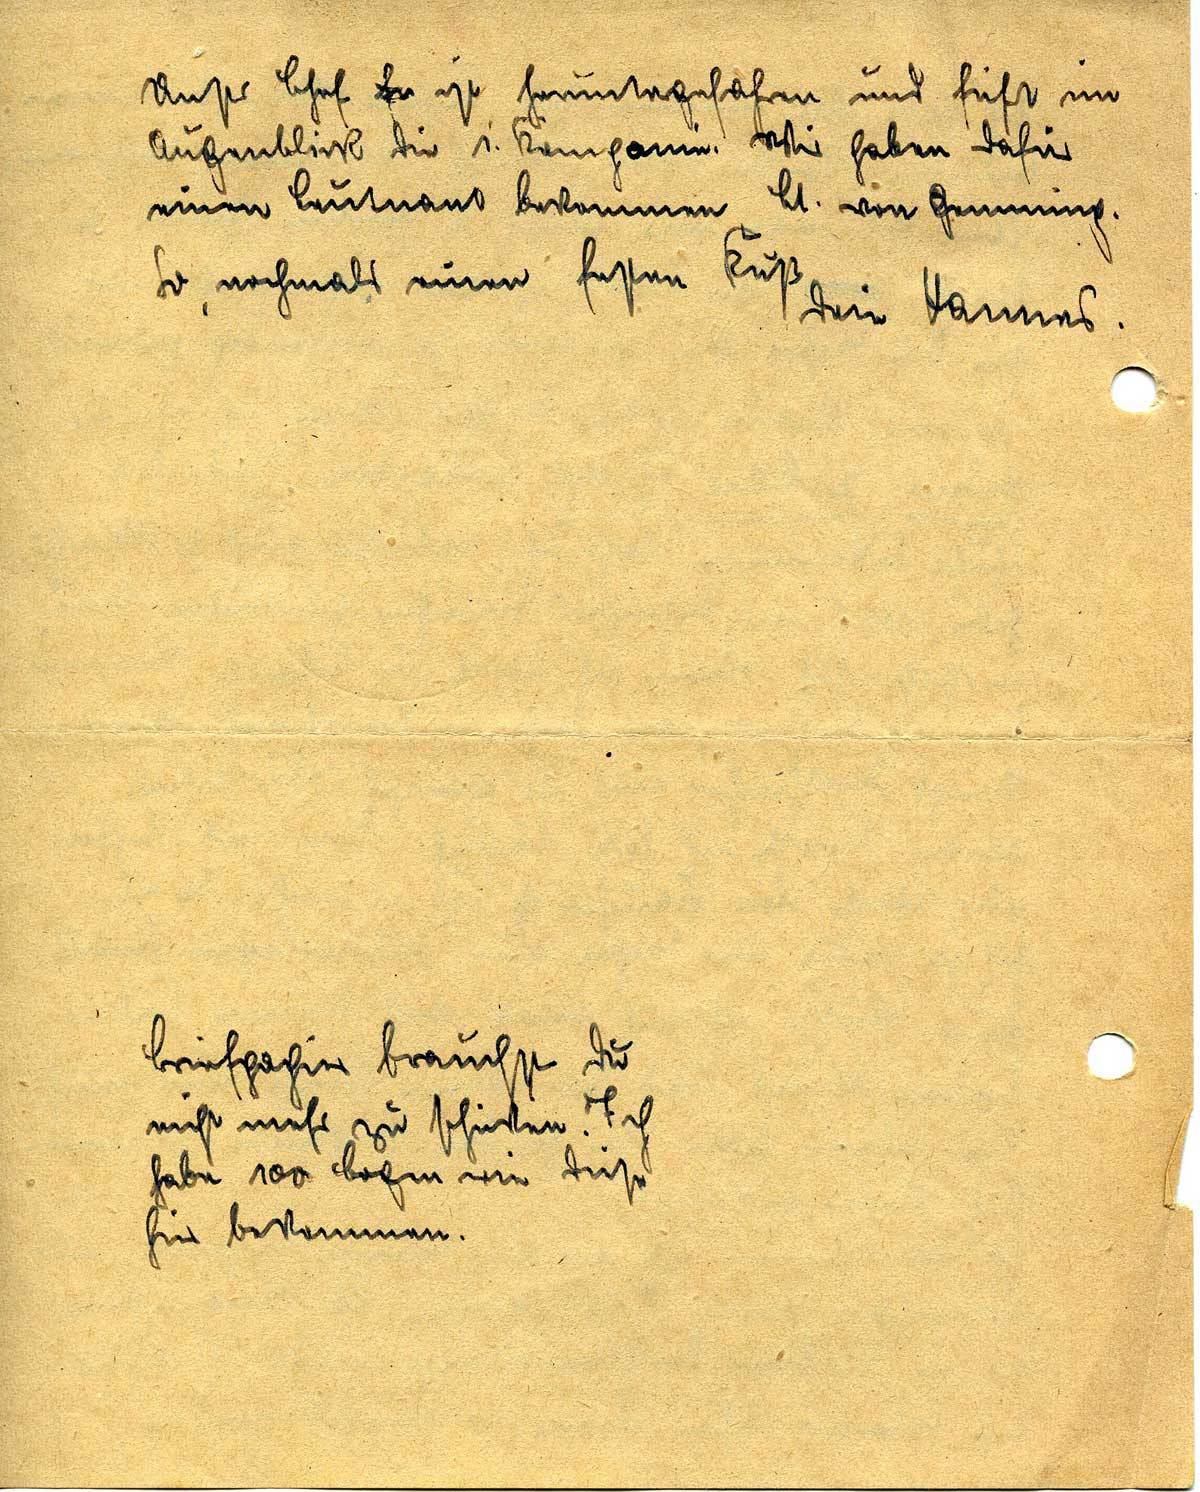 Unser Chef ist heruntergefahren und führt im
Augenblick die 1. Kompanie. Wir haben dafür
einen Leutnant bekommen, Lt. von Gemming.
So, nochmals einen festen Kuß
Dein Hannes.
Briefpapier brauchst Du
nicht mehr zu schicken. Ich
habe 100 Bogen wie diese
hier bekommen.